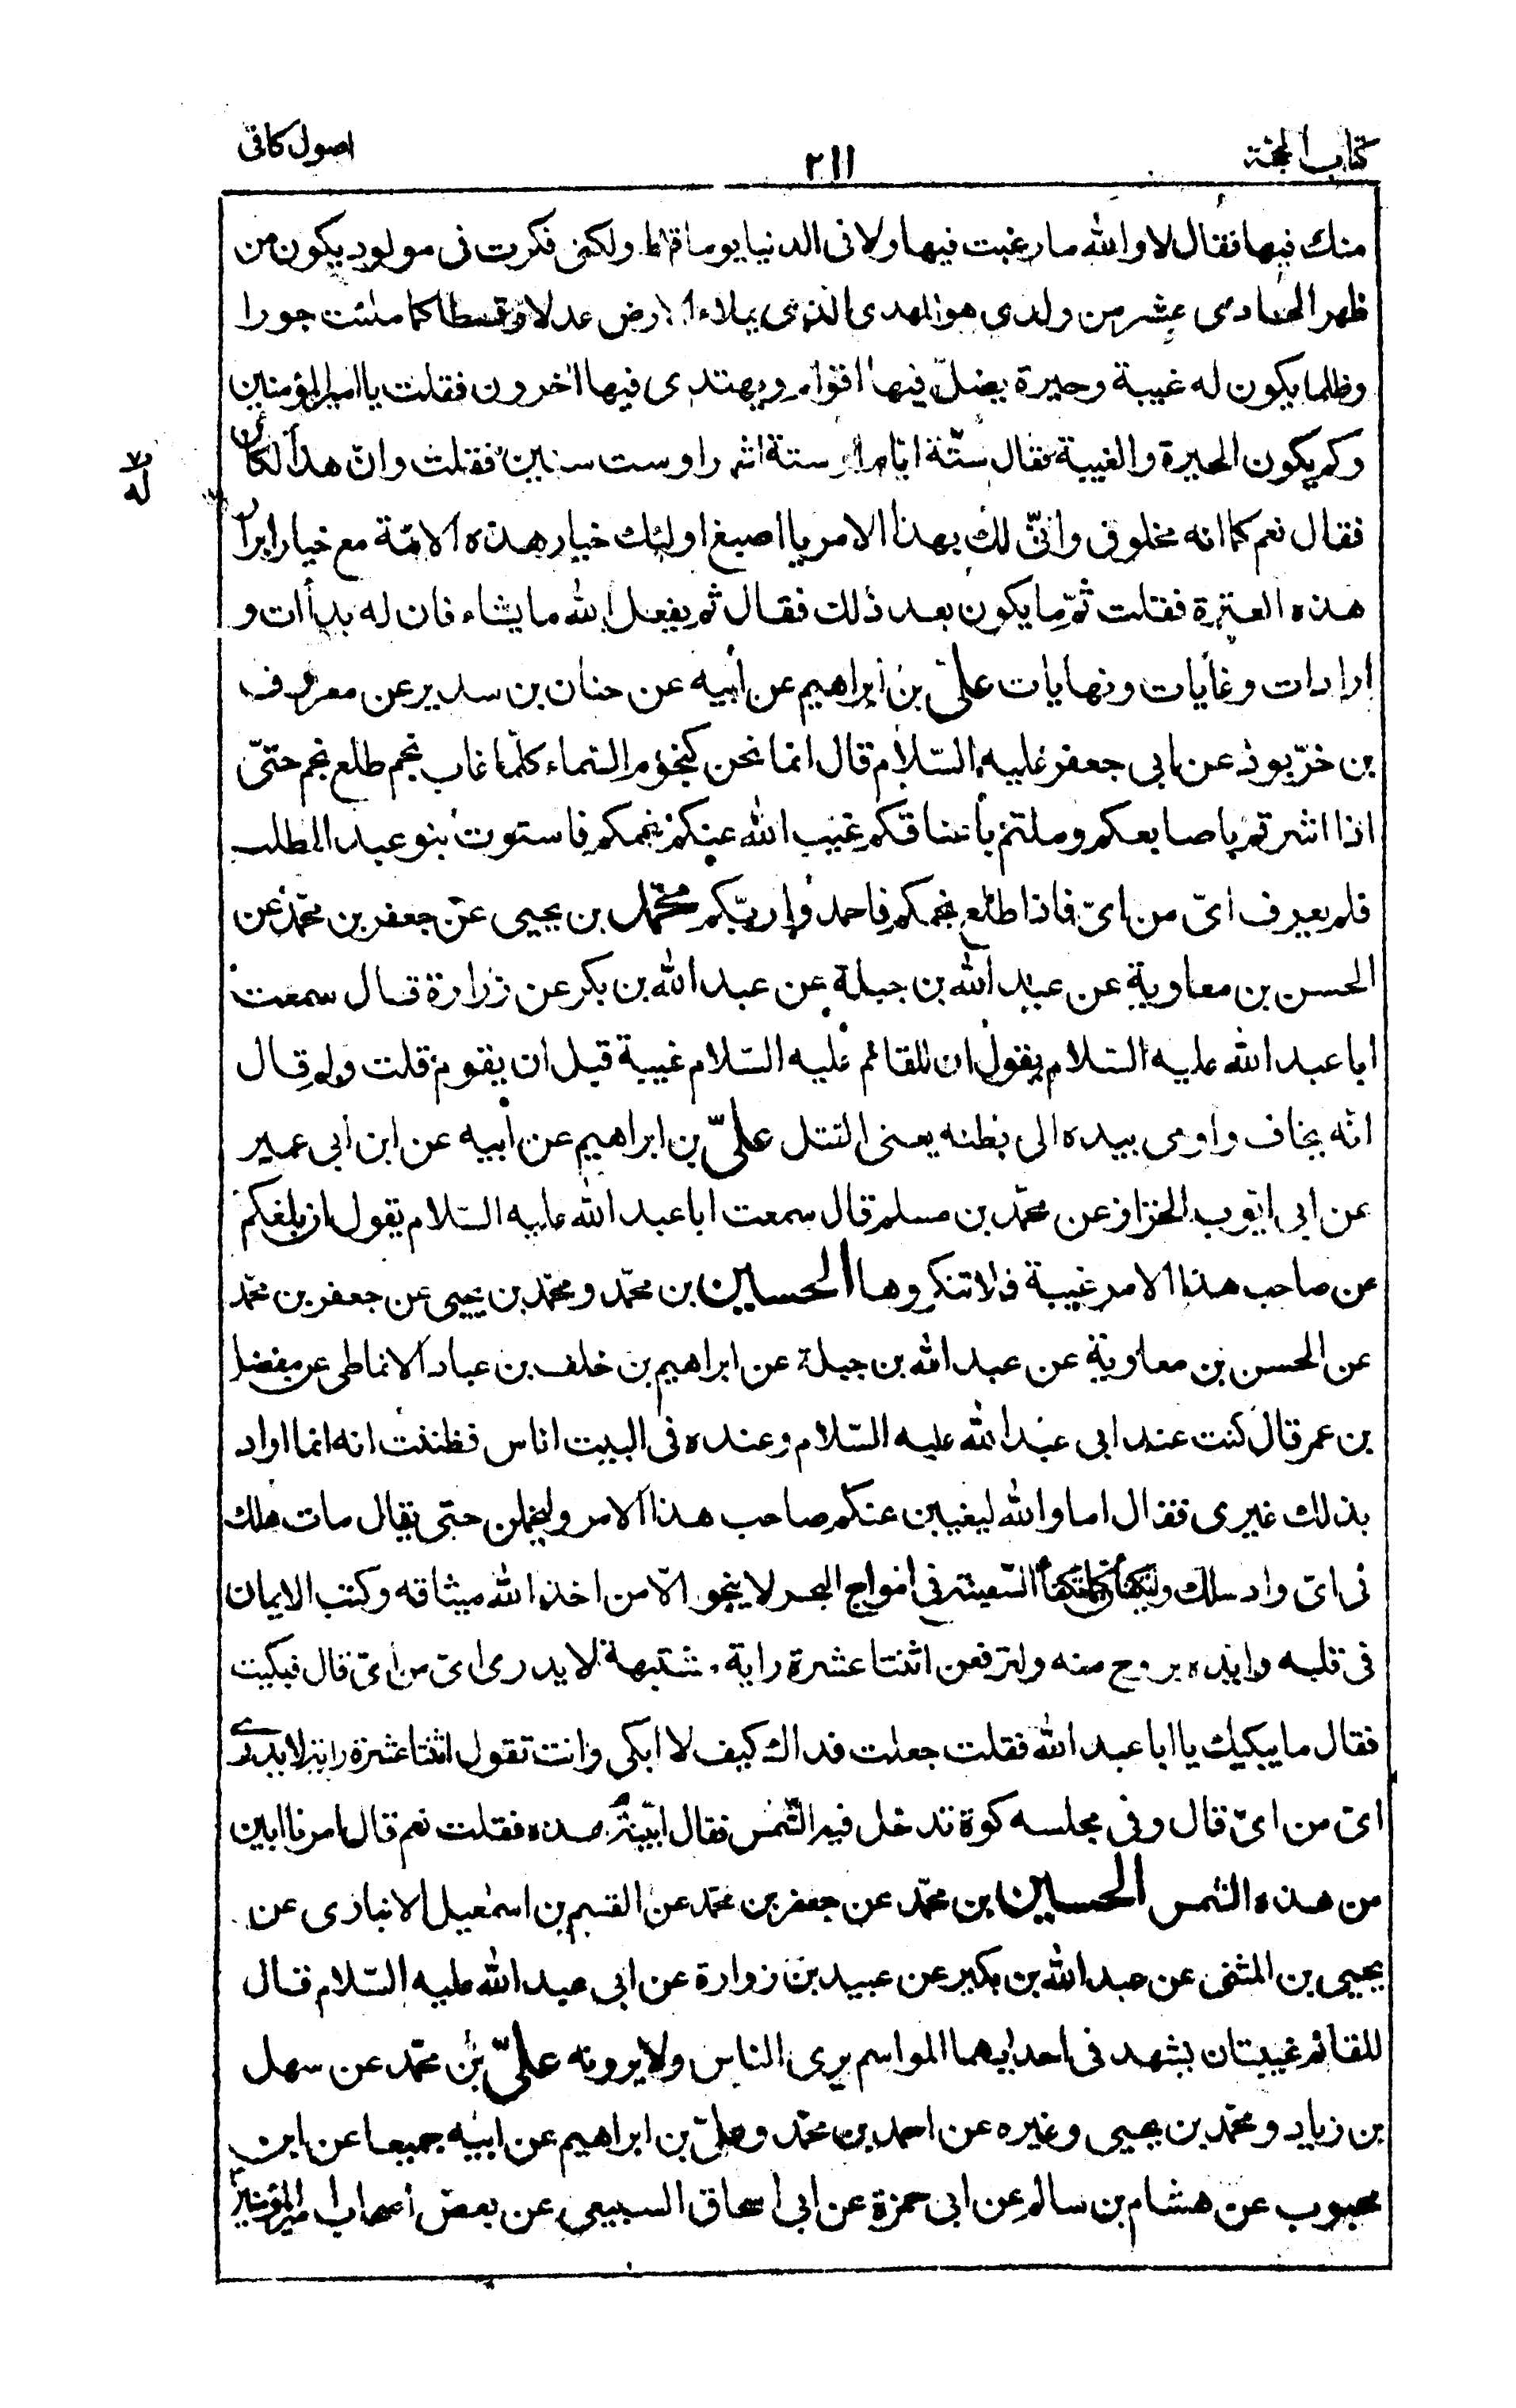 كتاب الحجة
٢١١
اصول كافى
منك فيها فقال لا والله ما رغبت فيها ولا فى الدنيا يوما قط ولكنى فكرت فى مولود يكون من
ظهر الحادى عشر من ولدى هو المهدى الذى يملاء الارض عدلا وقسطا كما ملئت جورا
وظلما يكون له غيبة وحيرة يضلّ فيها اقوام ويهتدى فيها اخرون فقلت يا امير المؤمنين
وكم يكون الحيرة والغيبة فقال ستّة ايام او ستة اشهر او ست سنين فقلت وانّ هذا لكائن
له
فقال نعم كما انه مخلوق وانّى لك بهذا الامر يا اصبغ اولئك خيار هذه الامّة مع خيار ابرار
هذه العترة فقلت ثمّ ما يكون بعد ذلك فقال ثم يفعل الله ما يشاء فان له بدأات و
ارادات وغايات ونهايات علىّ بن ابراهيم عن أبيه عن حنان بن سدير عن معروف
بن خرّبوذ عن ابى جعفر عليه السّلام قال انما نحن كنجوم السّماء كلّما غاب نجم طلع نجم حتىّ
اذا اشرتم باصابعكم وملتم بأعناقكم غيب الله عنكم نجمكم فاستوت بنو عبد المطلب
فلم يعرف اىّ من اىّ فاذا طلع نجمكم فاحمدوا ربّكم محمّد بن يحيى عن جعفر بن محمّد عن
الحسن بن معاوية عن عبد الله بن جبلة عن عبد الله بن بكر عن زرارة قال سمعت
ابا عبد الله عليه السّلام يقول ان للقائم عليه السّلام غيبة قبل ان يقوم قلت ولم قال
انّه يخاف واومى بيده الى بطنه يعنى القتل علىّ بن ابراهيم عن أبيه عن ابن ابى عمير
عن ابى ايّوب الخزاز عن محمّد بن مسلم قال سمعت ابا عبد الله عليه السّلام يقول ان بلغكم
عن صاحب هذا الامر غيبة فلا تنكروها الحسين بن محمّد ومحمّد بن يحيى عن جعفر بن محمّد
عن الحسن بن معاوية عن عبد الله بن جبلة عن ابراهيم بن خلف بن عباد الانماطى عن مفضل
بن عمر قال كنت عند ابى عبد الله عليه السّلام وعنده فى البيت اناس فظننت انه انما اراد
بذلك غيرى فقال اما والله ليغيبن عنكم صاحب هذا الامر وليخملن حتى يقال مات هلك
فى اىّ واد سلك ولتكفأن كما تكفأ السّفينة فى امواج البحر لا ينجو الّا من اخذ الله ميثاقه وكتب الايمان
فى قلبه وايّده بروح منه ولترفعن اثنتا عشرة راية مشتبهة لا يدرى اىّ من اىّ قال فبكيت
فقال ما يبكيك يا ابا عبد الله فقلت جعلت فداك كيف لا ابكى وانت تقول اثنتا عشرة راية لا يدرى
اىّ من اىّ قال وفى مجلسه كوة تدخل فيه الشّمس فقال ابيّنة هذه فقلت نعم قال امرنا ابين
من هذه الشمس الحسين بن محمّد عن جعفر بن محمّد عن القسم بن اسمعيل الانبارى عن
يحيى بن المثنى عن عبد الله بن بكير عن عبيد بن زرارة عن ابى عبد الله عليه السّلام قال
للقائم غيبتان يشهد فى احديهما المواسم يرى الناس ولا يرونه علىّ بن محمّد عن سهل
بن زياد ومحمّد بن يحيى وغيره عن احمد بن محمّد وعلىّ بن ابراهيم عن ابيه جميعا عن ابن
محبوب عن هشام بن سالم عن ابى حمزة عن ابى اسحاق السبيعى عن بعض اصحاب امير المؤمنين